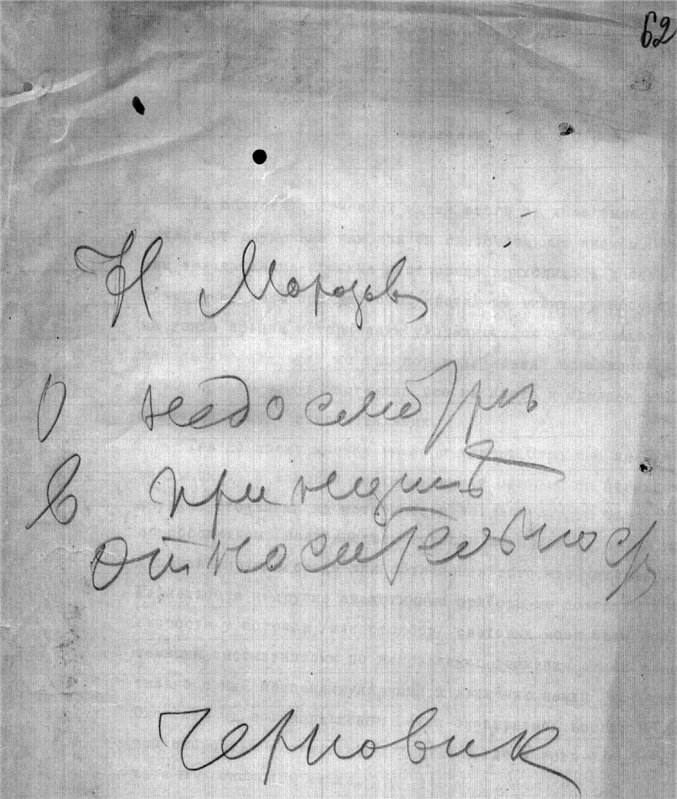 62
Н Морозов
О недосмотре
в принципе
относительност
Черновик